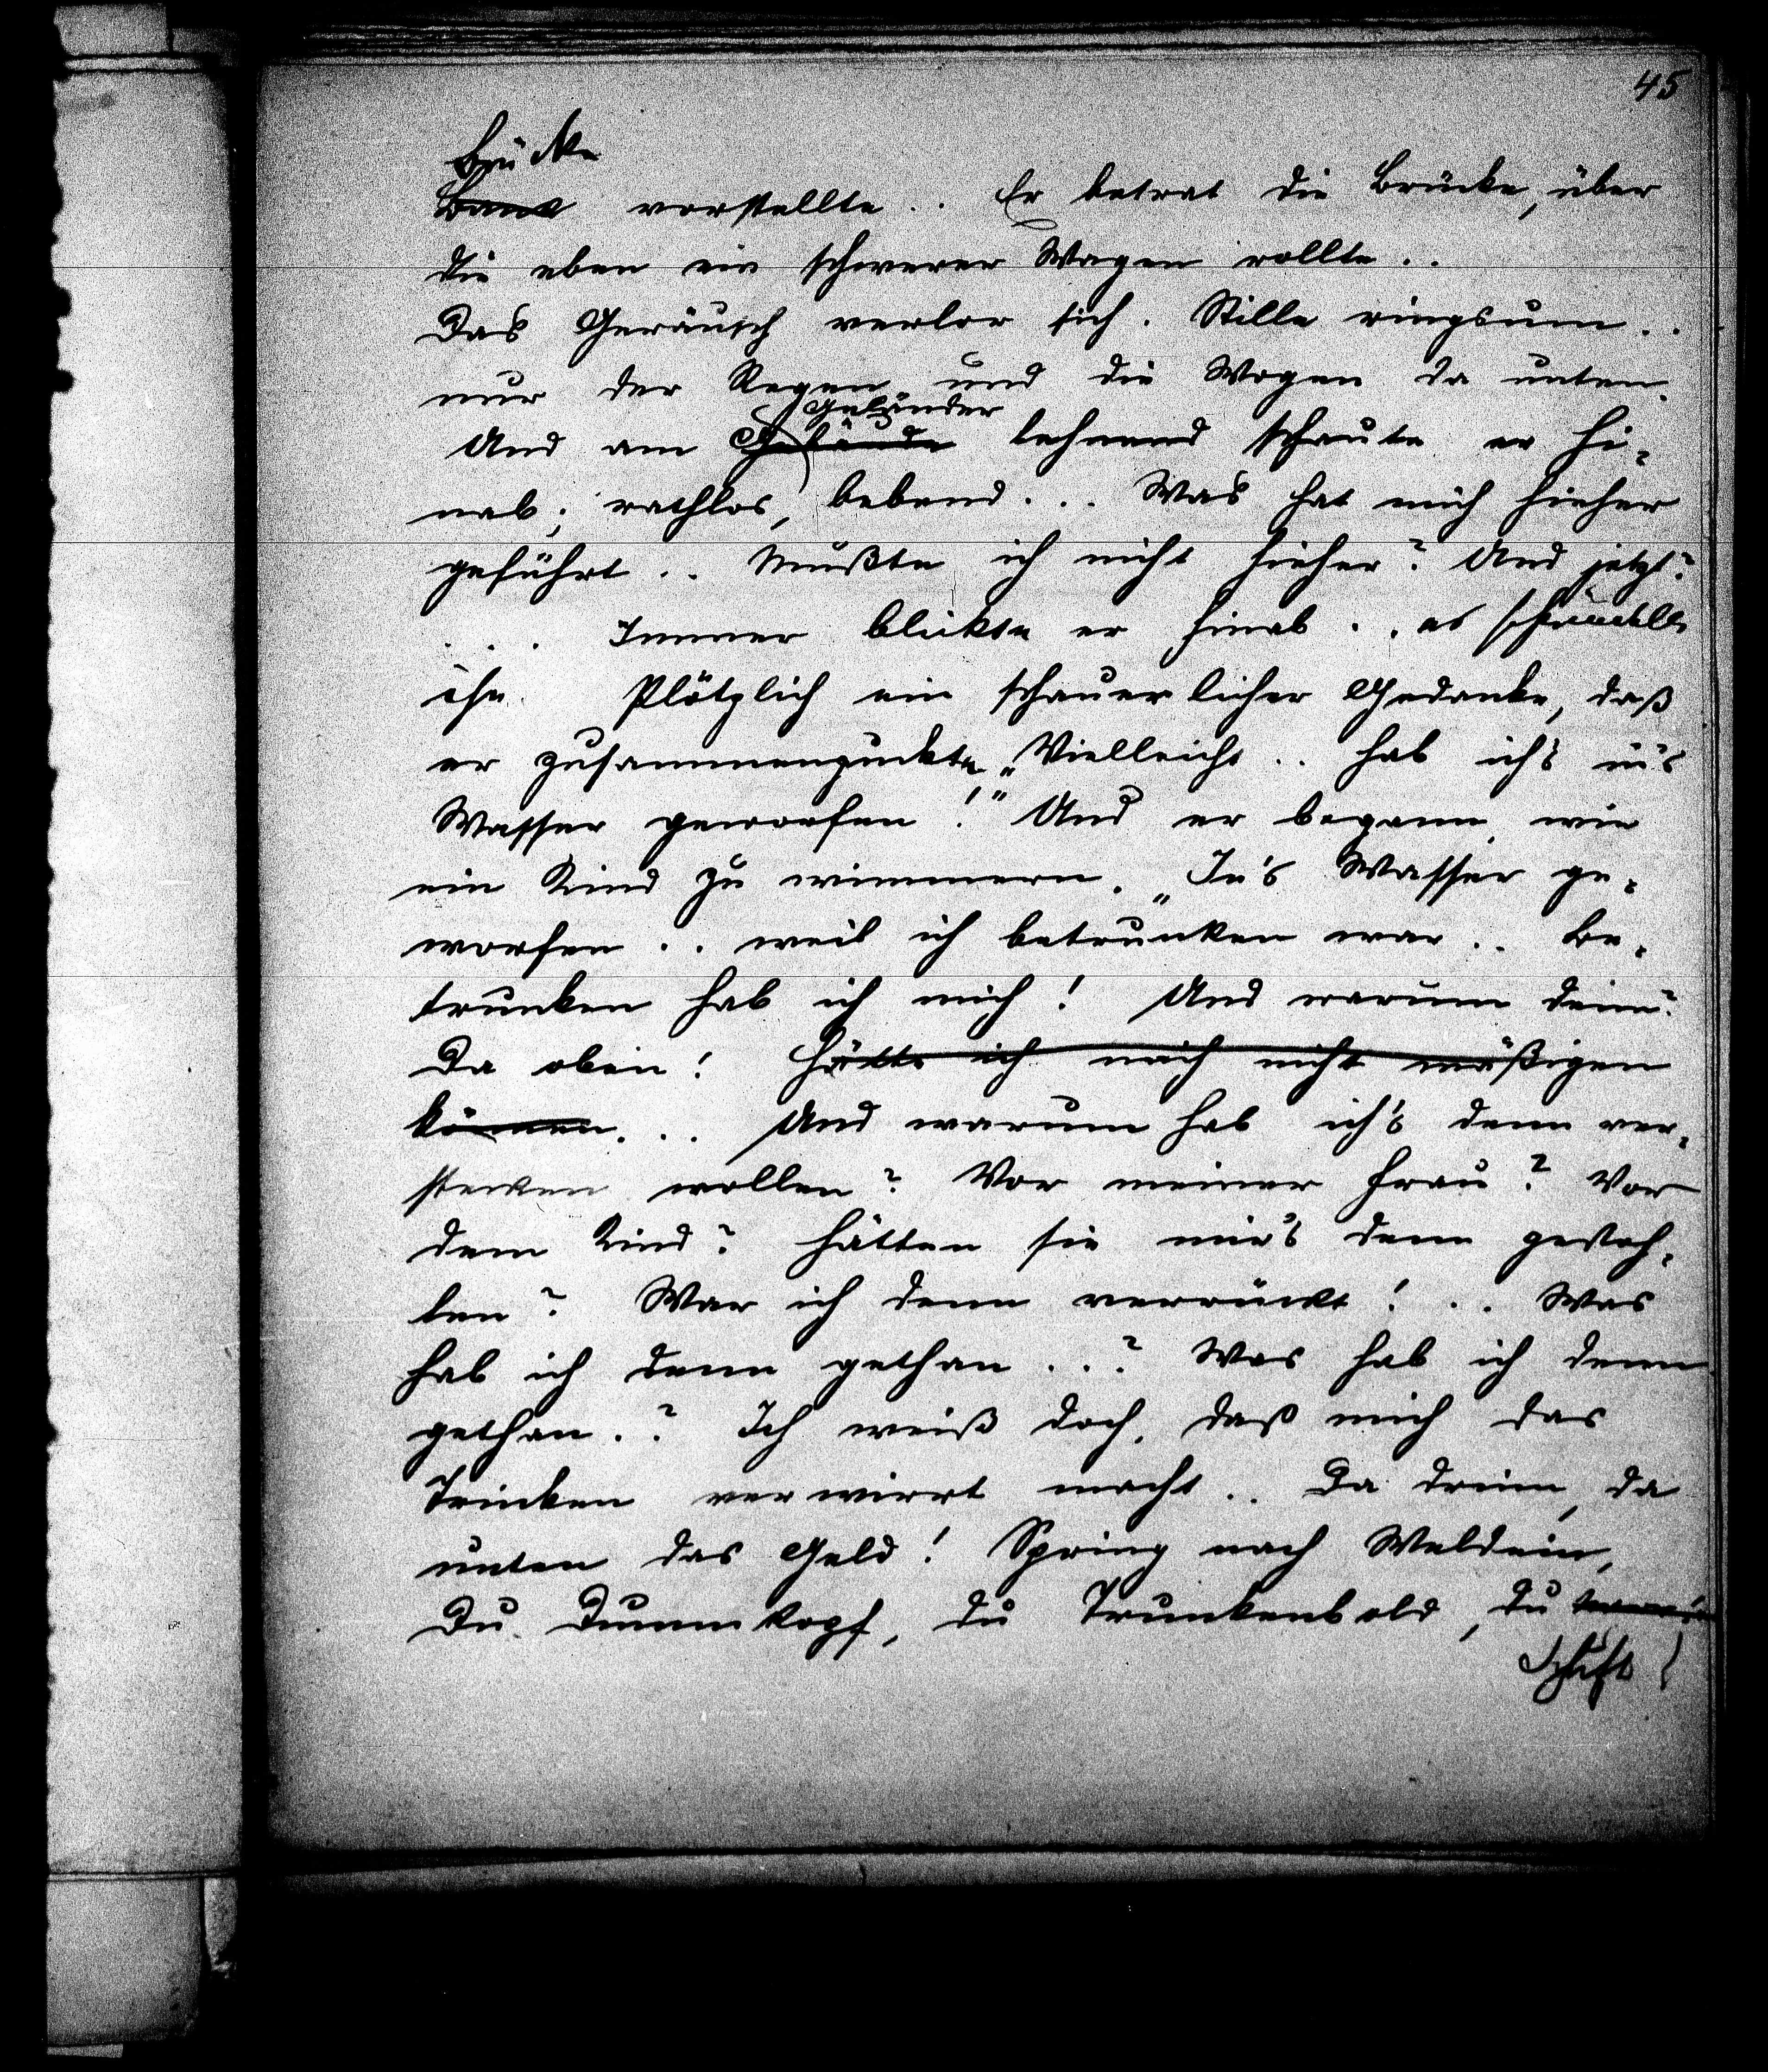 45
Brücke
Bank vorstellte .. Er betrat die Brücke, über
die eben ein schwerer Wagen rollte ..
Das Geräusch verlor sich. Stille ringsum ..
nur der Regen und die Wogen da unten.
Geländer
Und am Gebäude lehnend schaute er hi-
nab; rathlos, bebend ... Was hat mich hieher
geführt .. Mußte ich nicht hieher? Und jetzt?
... Immer blickte er hinab .. es schwindelte
ihn. Plötzlich ein schauerlicher Gedanke, daß
er zusammenzuckte „Vielleicht .. hab ich's in's
Wasser geworfen!" Und er begann wie
ein Kind zu wimmern. „In's Wasser ge-
worfen .. weil ich betrunken war .. Be-
trunken hab ich mich! Und warum denn?
Da oben! Hätte ich mich nicht mäßigen
können ... Und warum hab ich's denn ver-
stecken wollen? Vor meiner Frau? Vor
dem Kind? Hätten sie mir's denn gestoh-
len? War ich denn verrückt! .. Was
hab ich denn gethan ..? Was hab ich denn
gethan ..? Ich weiß doch, daß mich das
Trinken verwirrt macht .. Da drinn, da
unten das Geld! Spring nach Weldein,
Du Dummkopf, du Trunkenbold, du
Schuft!